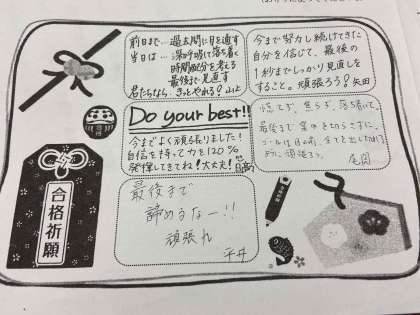 前日まで…過去問に目を通す
当日は…深呼吸して落ち着く
時間配分を考える
最後まで見直す
君たちなら、きっとやれる! 山上
今まで努力し続けてきた
自分を信じて、最後の
1秒までしっかり見直しを
すること。頑張ろう! 矢田
Do your best!!
今までよく頑張りました!
自信を持って力を120%
発揮してきてね! 大丈夫!
慌てず、焦らず、落ち着いて、
最後まで気を切らさずに。
ゴールは目の前、全てを出し切れる
ように頑張ろう。
尾関
最後まで
諦めるなー!!
頑張れ
平井
合格祈願